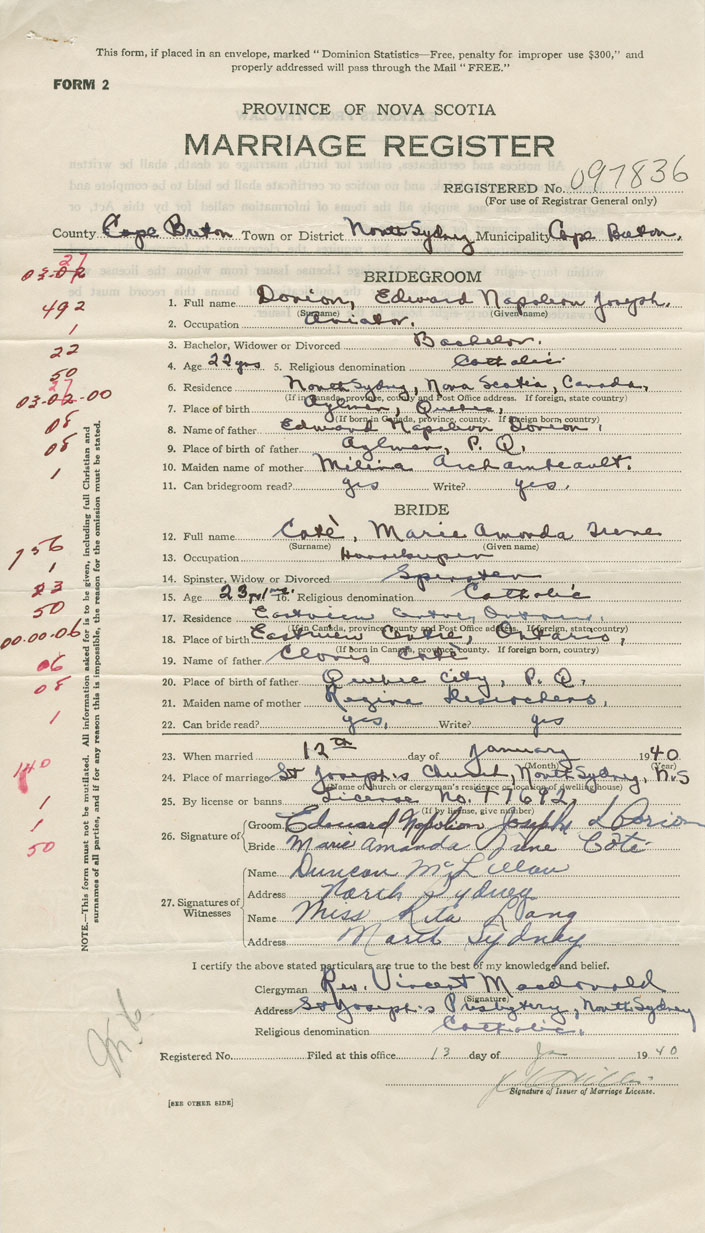 This form, if placed in an envelope, marked "Dominion Statistics—Free, penalty for improper use $300," and
properly addressed will pass through the Mail "FREE."
FORM 2
PROVINCE OF NOVA SCOTIA
MARRIAGE REGISTER
REGISTERED No. 097836
(For use of Registrar General only)
County Cape Breton Town or District North Sydney Municipality Cape Breton.
27
03-02
BRIDEGROOM
492
1. Full name Dorion, Edward Napoleon Joseph.
(Surname) (Given name)
1
2. Occupation Aviator.
22
3. Bachelor, Widower or Divorced Bachelor.
50
4. Age 22 yrs 5. Religious denomination Catholic
27
03-02-00
6. Residence North Sydney, Nova Scotia, Canada,
(If in Canada, province, county and Post Office address. If foreign, state country)
08
7. Place of birth Aylmer, Quebec,
(If born in Canada, province, county. If foreign born, country)
08
8. Name of father Edward Napoleon Dorion,
9. Place of birth of father Aylmer, P. Q.
1
10. Maiden name of mother Milina Archambeault.
11. Can bridegroom read? yes Write? yes.
BRIDE
12. Full name Coté, Marie Amanda Irene
(Surname) (Given name)
756
13. Occupation Housekeeper
1
14. Spinster, Widow or Divorced Spinster
23
15. Age 23 yrs 1 mo. 16. Religious denomination Catholic
50
17. Residence Eastview Centre, Ontario,
(If in Canada, province, county and Post Office address. If foreign, state country)
00-00-06
18. Place of birth Eastview Centre, Ontario,
(If born in Canada, province, county. If foreign born, country)
06
19. Name of father Clovis Coté
08
20. Place of birth of father Quebec City, P. Q.
21. Maiden name of mother Regina Desrochers,
1
22. Can bride read? yes, Write? yes
23. When married 12th day of January 1940
(Month) (Year)
140
24. Place of marriage St Joseph's Church, North Sydney, N.S
(Name of church or clergyman's residence or location of dwelling house)
1
25. By license or banns License No. T7682
(If by license, give number)
1
26. Signature of Groom Edouard Napoléon Joseph Dorion
50
Bride Marie Amanda Irène Coté
27. Signatures of Witnesses
Name Duncan McLellan
Address North Sydney
Name Miss Rita Lang
Address North Sydney
NOTE.—This form must not be mutilated. All information asked for is to be given, including full Christian and
surnames of all parties, and if for any reason this is impossible, the reason for the omission must be stated.
I certify the above stated particulars are true to the best of my knowledge and belief.
Clergyman Rev. Vincent Macdonald
(Signature)
Address St Joseph's Presbytery, North Sydney
Religious denomination Catholic.
Registered No. Filed at this office 13 day of Ja 1940
Signature of Issuer of Marriage License.
[SEE OTHER SIDE]